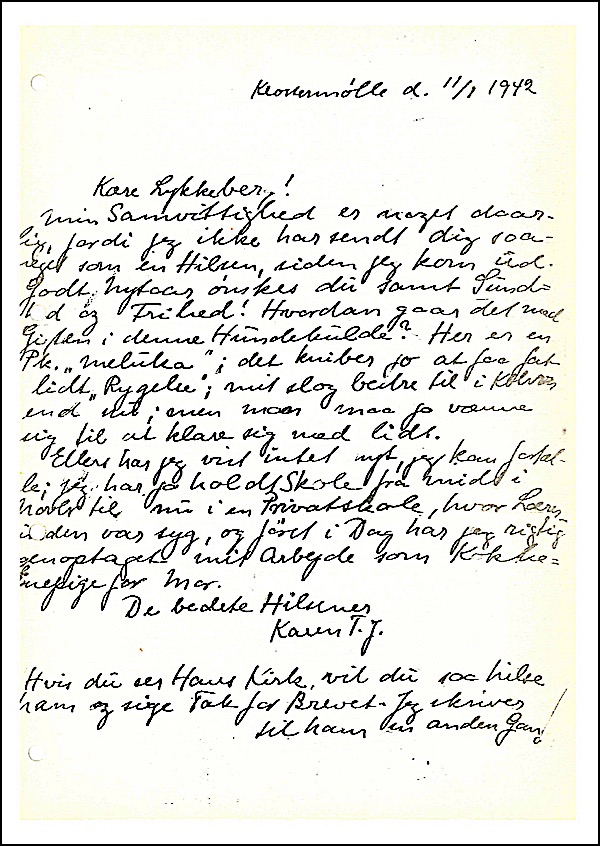 Klostermølle d. 11/1 1942
Kære Lykkeberg!
Min Samvittighed er noget daar-
lig, fordi jeg ikke har sendt dig saa-
meget som en Hilsen, siden jeg kom ud.
Godt Nytaar ønskes du samt Sund-
hed og Frihed! Hvordan gaar det med
Gigten i denne Hundekulde? Her er en
Pk. "Meluka"; det kniber jo at faa fat
lidt "Rygelse"; mit slog bedre til i
end nu; men man maa jo vænne
sig til at klare sig med lidt.
Ellers har jeg vist intet nyt, jeg kan fortæl-
le; jeg har jo holdt Skole fra midt i
Novbr til nu i en Privatskole, hvor Lærer-
inden var syg, og først i Dag har jeg rigtig
genoptaget mit Arbejde som Køkke-
nepige for Mor.
De bedste Hilsner
Karen T. J.
Hvis du ser Hans Kirk, vil du saa hilse
ham og sige Tak for Brevet. Jeg skriver
til ham en anden Gang!